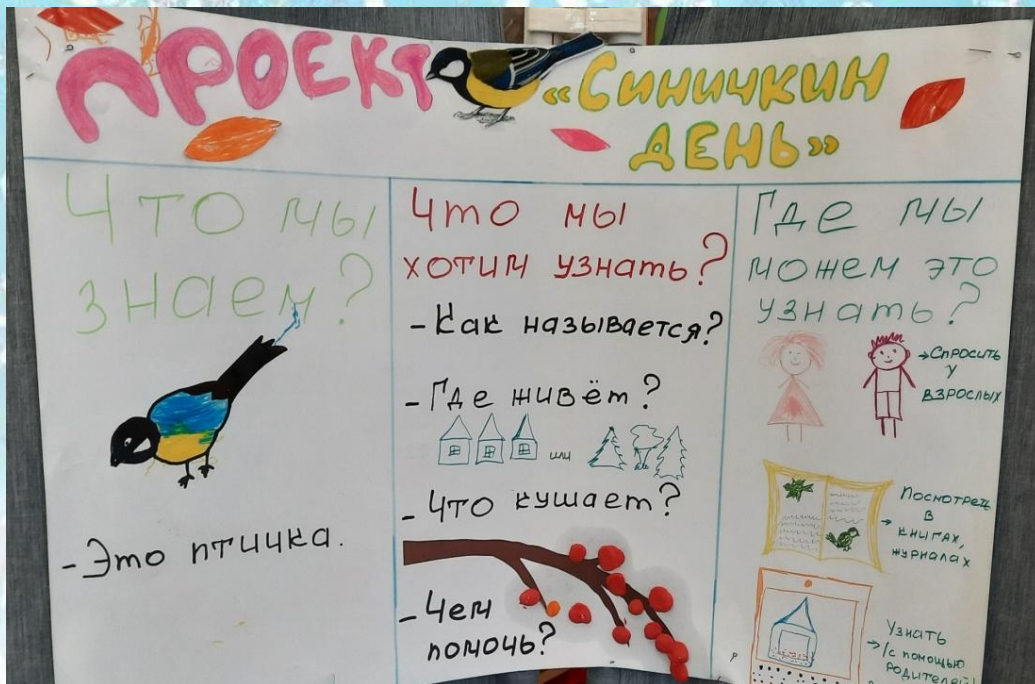 ПРОЕКТ «Синичкин
ДЕНЬ»
Что мы
знаем?
- Это птичка.
Что мы
хотим узнать?
- Как называется?
- Где живёт?
или
- Что кушает?
- Чем
помочь?
Где мы
можем это
узнать?
Спросить
у
взрослых
Посмотреть
в
книгах,
журналах
Узнать
/с помощью
родителей/